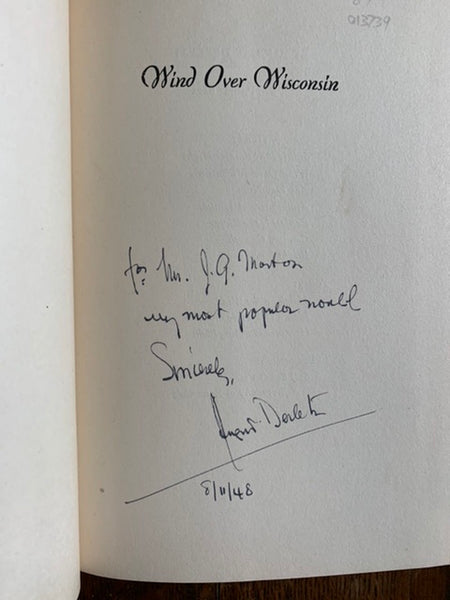 013739
Wind Over Wisconsin
for Mr. J.G. Morton
my most popular novel
Sincerely,
August Derleth
8/11/48